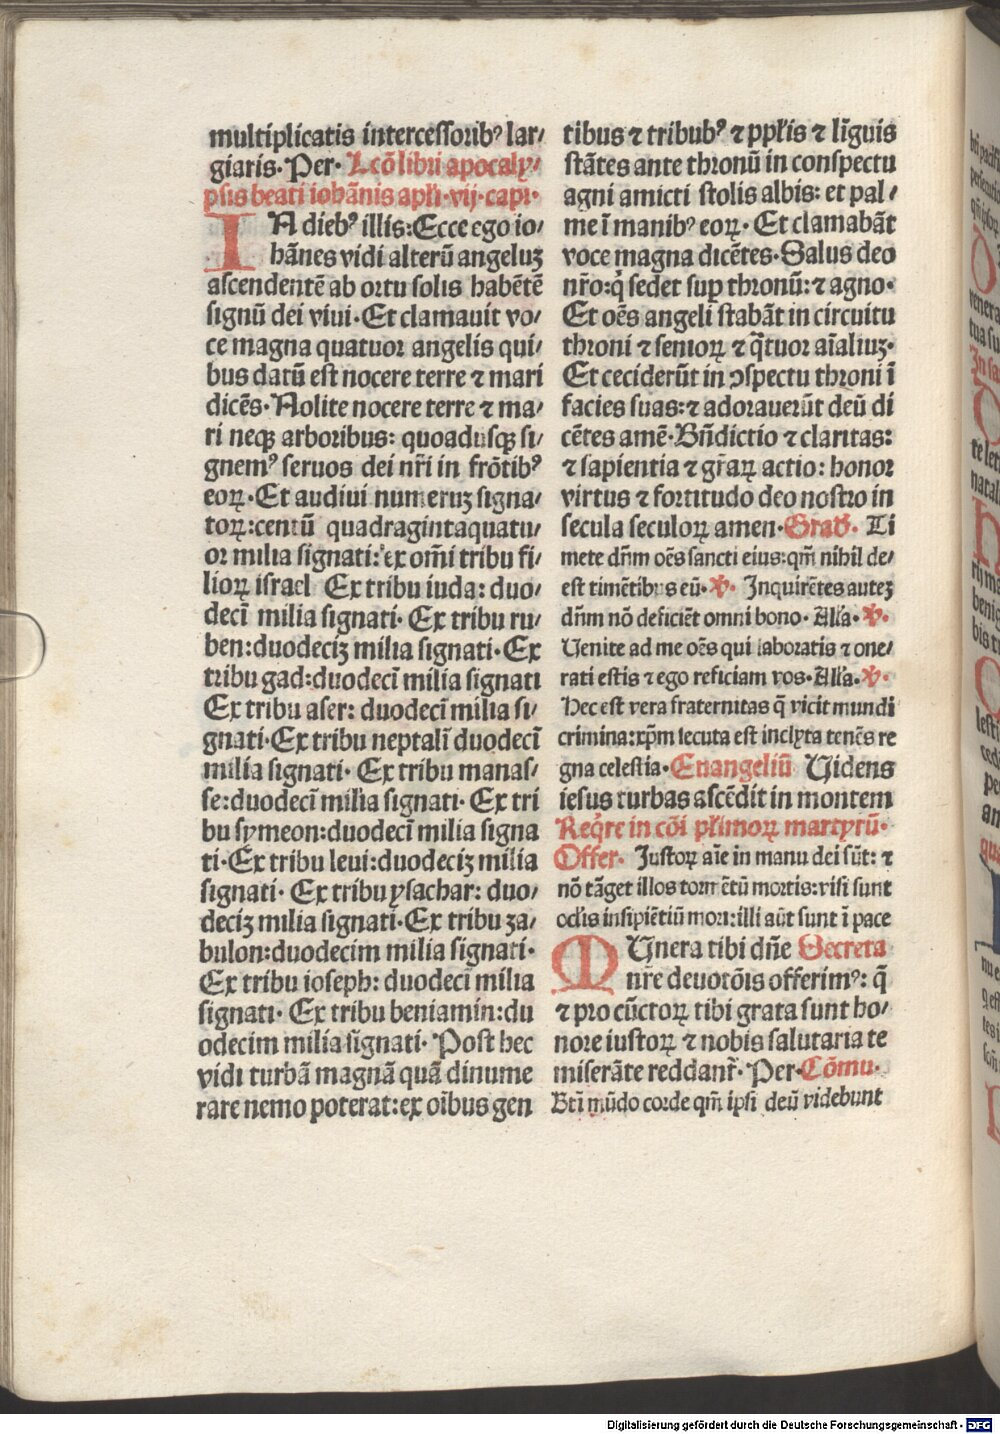 multiplicatis intercessorib⁹ lar/
giaris. Per. Lcō libri apocaly/
psis beati iohānis apl̄i·vij·capi·
IN dieb⁹ illis:Ecce ego io/
hānes vidi alterū angeluꝫ
ascendentē ab ortu solis habētē
signū dei viui·Et clamauit vo/
ce magna quatuor angelis qui/
bus datū est nocere terre ⁊ mari
dicēs·Nolite nocere terre ⁊ ma/
ri neqꝫ arboribus: quoadusqꝫ si/
gnem⁹ seruos dei nr̄i in frōtib⁹
eoꝝ·Et audiui numeruꝫ signa/
toꝝ:centū quadragintaquatu/
or milia signati: ex om̄i tribu fi/
lioꝝ israel Ex tribu iuda: duo/
decī milia signati· Ex tribu ru/
ben:duodeciꝫ milia signati·Ex
tribu gad:duodecī milia signati
Ex tribu aser: duodecī milia si/
gnati·Ex tribu neptalī duodecī
milia signati· Ex tribu manas/
se:duodecī milia signati· Ex tri
bu symeon:duodecī milia signa
ti·Ex tribu leui:duodeciꝫ milia
signati· Ex tribu ysachar: duo/
deciꝫ milia signati·Ex tribu za/
bulon:duodecim milia signati·
Ex tribu ioseph: duodecī milia
signati· Ex tribu beniamin:du
odecim milia signati· Post hec
vidi turbā magnā quā dinume
rare nemo poterat:ex oībus gen
tibus ⁊ tribub⁹ ⁊ ppl̄is ⁊ līguis
stātes ante thronū in conspectu
agni amicti stolis albis: et pal/
me ī manib⁹ eoꝝ· Et clamabāt
voce magna dicētes·Salus deo
nr̄o:q̇ sedet sup thronū:⁊ agno·
Et oēs angeli stabāt in circuitu
throni ⁊ senioꝝ ⁊ q̄tuor aīaliuꝫ·
Et ceciderūt in ꝯspectu throni ī
facies suas:⁊ adorauerūt deū di
cētes amē·Bn̄dictio ⁊ claritas:
⁊ sapientia ⁊ gr̄aꝝ actio: honor
virtus ⁊ fortitudo deo nostro in
secula seculoꝝ amen·Grad̄. Ti
mete dn̄m oēs sancti eius:qm̄ nihil de/
est timētibus eū·℣· Inquirētes auteꝫ
dn̄m nō deficiēt omni bono·All'a·℣·
Uenite ad me oēs qui laboratis ⁊ one/
rati estis ⁊ ego reficiam vos·All'a·℣·
Hec est vera fraternitas q̄ vicit mundi
crimina:xp̄m secuta est inclyta tenēs re
gna celestia·Euangeliū Uidens
iesus turbas ascēdit in montem
Reqr̄e in cōi pl̄imoꝝ martyrū·
Offer· Iustoꝝ aīe in manu dei sūt: ⁊
nō tāget illos tormētū mortis:visi sunt
ocl̄is insipiētiū mori:illi aūt sunt ī pace
MUnera tibi dn̄e Secreta
nr̄e deuotōis offerim⁹: q̄
⁊ pro cūctoꝝ tibi grata sunt ho/
nore iustoꝝ ⁊ nobis salutaria te
miserāte reddant̄· Per·Cōmu·
Bt̄i mūdo corde qm̄ ipsi deū videbunt
Digitalisierung gefördert durch die Deutsche Forschungsgemeinschaft - DFG